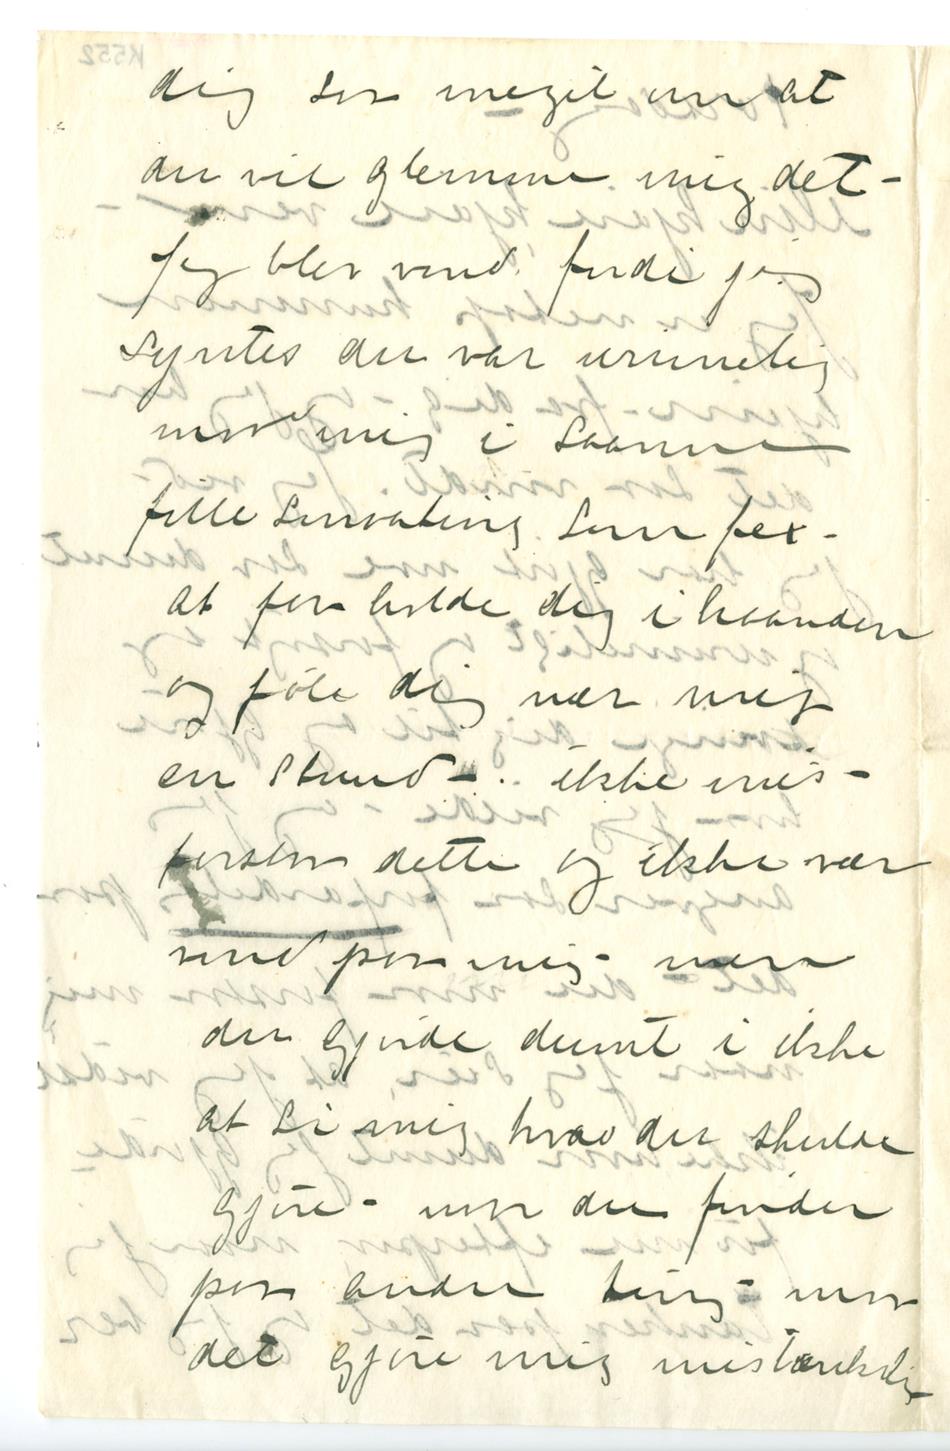 dig saa meget om at
du vil glemme mig det –
Jeg blev vred fordi jeg
syntes du var urimelig
mod mig i saanne
fille smaating som fex –
at faa holde dig i haanden
og føle dig nær mig
en stund – ikke mis–
forstaa dette og ikke vær
vred paa mig – men
du gjorde dumt i ikke
at si mig hvad du skulde
gjøre – naar du finder
paa andre ting – maa
det gjøre mig mistænkelig